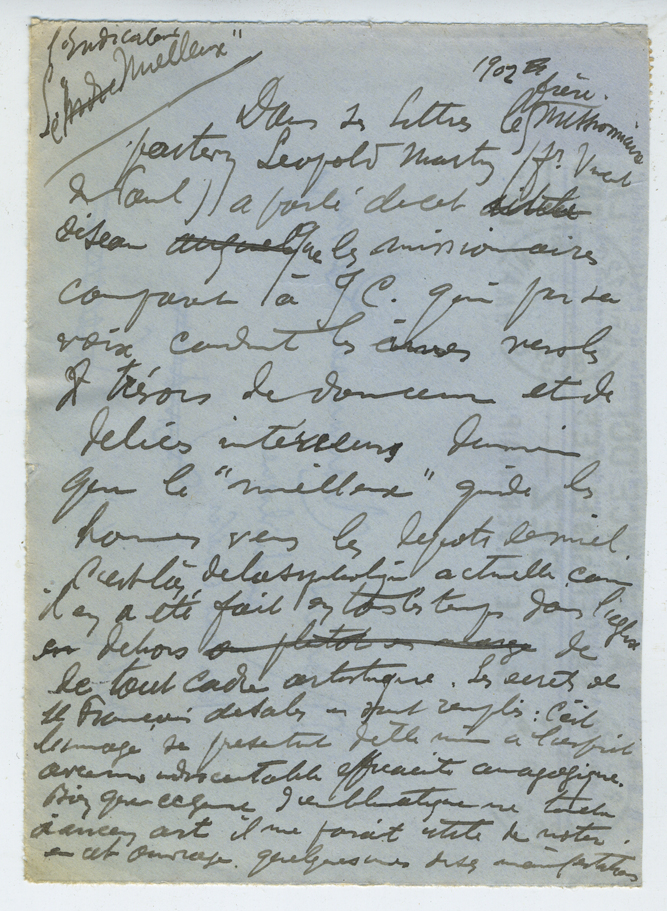 L'Indicateur
Le "Mielleux"
1902
Dans ses lettres le frère missionnaire
Leopold Marty (fr. Vincent
de Paul) a parlé de cet
oiseau auquel Que les missionnaires
comparent à J C. qui par sa
voix conduit les âmes vers les
trésors de douceur et de
délices intérieures
que le "mielleux" guide les
hommes vers les depots de miel.
C'est là de la symbolique actuelle comme
il en a été fait en tous les temps dans l'église
en dehors ou plutot en marge de
de tout cadre artistique. Les ecrits de
St François de Sales en sont remplis : c'est
l'image se présentant d'elle même à l'esprit
avec une indiscutable efficacité anagogique.
Bien que ce genre d'emblématique ne touche
à aucun art il me parait utile de noter
en cet ouvrage quelques unes de ses manifestations